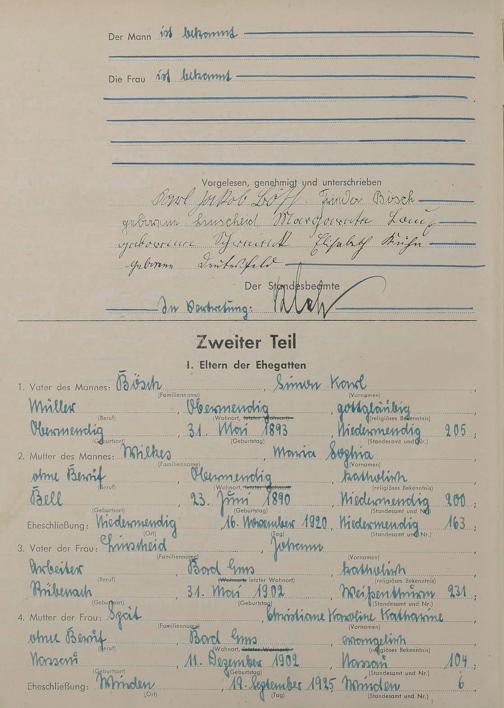 Der Mann ist bekannt
Die Frau ist bekannt
Vorgelesen, genehmigt und unterschrieben
Karl Jakob Frieda Bösch
geborene Linscheid Margareta
geborene Elisabeth Kuhn
geborene
Der Standesbeamte
In Vertretung:
Zweiter Teil
I. Eltern der Ehegatten
1. Vater des Mannes: Bösch, Simon Karl,
(Familienname) (Vornamen)
Müller, Obermendig, gottgläubig
(Beruf) (Wohnort, letzter Wohnort) (religiöses Bekenntnis)
Obermendig, 31. Mai 1893, Niedermendig 205;
(Geburtsort) (Geburtstag) (Standesamt und Nr.)
2. Mutter des Mannes: Wilkes, Maria Sophia,
(Familienname) (Vornamen)
ohne Beruf, Obermendig, katholisch
(Beruf) (Wohnort, letzter Wohnort) (religiöses Bekenntnis)
Bell, 23. Juni 1890, Niedermendig 200;
(Geburtsort) (Geburtstag) (Standesamt und Nr.)
Eheschließung: Niedermendig, 16. November 1920, Niedermendig 163;
(Ort) (Tag) (Standesamt und Nr.)
3. Vater der Frau: Linscheid, Johann,
(Familienname) (Vornamen)
Arbeiter, Bad Ems, katholisch
(Beruf) (Wohnort, letzter Wohnort) (religiöses Bekenntnis)
Rübenach, 31. Mai 1902, Weißenthurm 231;
(Geburtsort) (Geburtstag) (Standesamt und Nr.)
4. Mutter der Frau: Spait, Christiane Karoline Katharine
(Familienname) (Vornamen)
ohne Beruf, Bad Ems, evangelisch
(Beruf) (Wohnort, letzter Wohnort) (religiöses Bekenntnis)
Nassau, 11. Dezember 1902, Nassau 104;
(Geburtsort) (Geburtstag) (Standesamt und Nr.)
Eheschließung: Winden, 19. September 1925, Winden 6;
(Ort) (Tag) (Standesamt und Nr.)